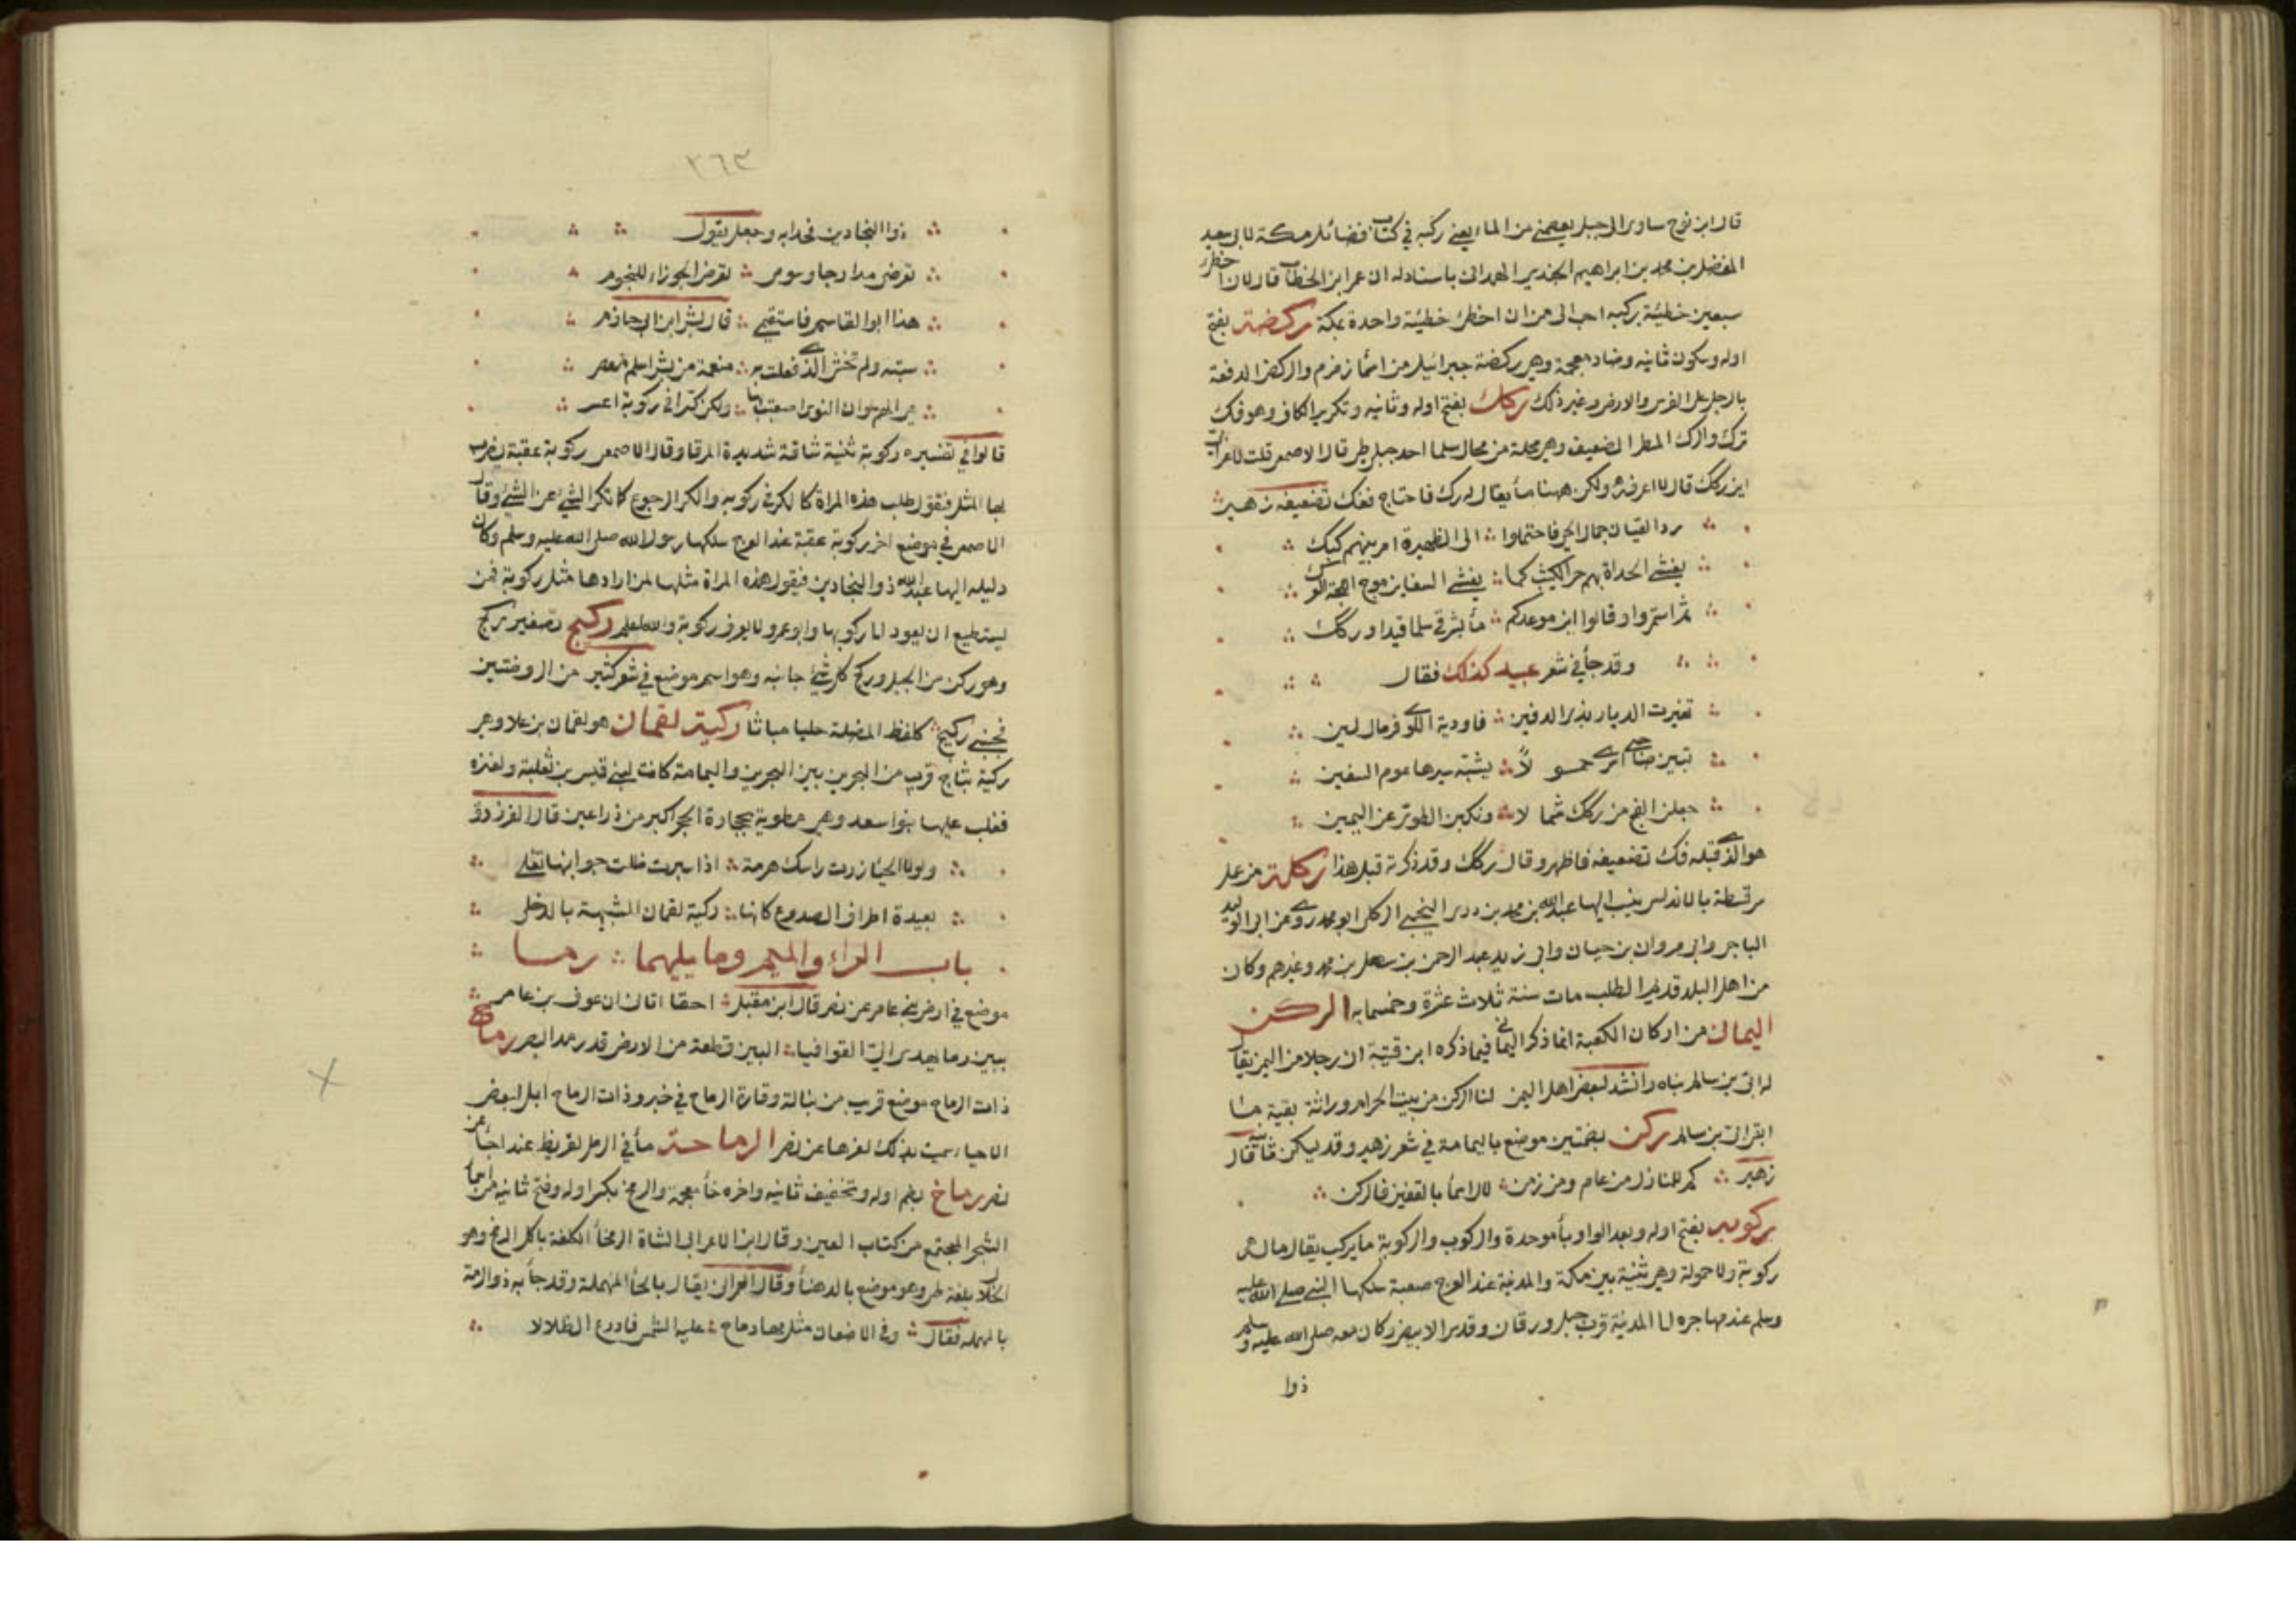 قال ابن نوح ساوى الى جبل يعصمنى من الماء يعنى ركبه فى كتاب فضائل مكة لابى سعيد
المفضل بن محمد بن ابراهيم الجندى الهمدانى باسناد له ان عمر ابن الخطاب قال لان اخطى
سبعين خطئية بركبه احب الى من ان اخطئ خطئية واحدة بمكة ركضة بفتح
اوله وسكون ثانيه وضاد معجمة وهى ركضة جبرائيل من اسما زمزم والركض الدفعة
بالرجل على الفرس والارض وغير ذلك ركك بفتح اوله وثانيه وتكرير الكاف وهو فك
ترك والرك المطر الضعيف وهى محلة من محال سلما احد جبلى طى قال الاصمعى قلت لاعرابى
اين ركك قال لا اعرفه ولكن ههنا ما يقال له رك فاحتاج ففك تضعيفه زهير
رد القيان جمال الحى فاحتملوا الى الظهيرة امر بينهم لبك
يغشى الحداة بهم حر الكثيب كما يغشى السفاين موج اللجة العرك
ثم استمروا وقالوا ان موعدكم ما بشرقى سلما فيد او ركك
وقد جاء فى شعر عبيد كذلك فقال
تغيرت الديار بذى الدفين فاودية اللوى فرمال لين
تبين صاحبى اترى حمولا يشبه سيرها عوم السفين
جعلن الفج من ركك شمالا ونكبن الطوى عن اليمين
هو الذى قبله فك تضعيفه فاظهر وقال ركك وقد ذكرته قبل هذا ركلة من عمل
سرقسطة بالاندلس ينسب اليها عبد الله بن محمد بن درى التجيبى الركلى ابو محمد روى عن ابى الوليد
الباجى وابى مروان بن حيان وابى زيد عبد الرحمن بن سهل بن محمد وغيرهم وكان
من اهل البلد قديم الطلب مات سنة ثلاث عشرة وخمسمايه الركن
اليمانى من اركان الكعبة انما ذكر اليمانى فيما ذكره ابن قتيبة ان رجلا من اليمن يقال
له ابى بن سالم بناه وانشد لبعض اهل اليمن لنا الركن من بيت الحرام وراثة بقية ما
ابقى ابى بن سالم ركن بضمتين موضع باليمامة فى شعر زهير وقد يسكن ثانيه قال
زهير كم للمنازل من عام ومن زمن لال اسما بالقفين فالركن
ركوبه بفتح اوله وبعد الواو باء موحدة والركوب والركوبة ما يركب يقال ما له
ركوبة ولا حمولة وهى ثنية بين مكة والمدنية عند العرج صعبة سلكها النبى صلى الله عليه
وسلم عند مهاجره الى المدنية قرب جبل ورقان وقدس الابيض وكان معه صلى الله عليه وسلم
ذوا
٣٦٣
ذوا البجادين فحدا به وجعل يقول
تعرضى مدارجا وسومى تعرض الجوزاء للنجوم
هذا ابوا القاسم فاستقيمى قال بشر ابن ابى حازم
سبته ولم تخش الذى فعلت به منعمة من بشر اسلم معصر
هى الهم لو ان النوى اصعبت بها ولكن كرا فى ركوبة اعسر
قالوا فى تفسيره ركوبة ثنية شاقة شديدة المرقا وقال الاصمعى ركوبة عقبة يضرب
بها المثل فنقول طلب هذه المراة كالكر فى ركوبه والكر الرجوع كما تكر الشئ عن الشئ وقال
الاصمعى فى موضع اخر ركوبة عقبة عند العرج سلكها رسول الله صلى الله عليه وسلم وكان
دليله اليها عبد الله ذو البجادين فيقول هذه المراة مثلها لمن ارادها مثل ركوبة فمن
يستطيع ان يعود الى ركوبها وابو عمرو لا يعرف ركوبة والله اعلم ركيح تصغير ركح
وهو ركن من الجبل وركح كل شئ جانبه وهو اسم موضع فى شعر كثير من الروضتين
فجنبى ركيح كلفظ المضلة حليا مباثا ركية لقمان هو لقمان بن عاد وهى
ركية بثاج قرب من البحرين بين البحرين واليمامة كانت لبنى قيس بن ثعلبة ولعنزه
فغلب عليها بنوا سعد وهى مطوية بحجارة الحجر اكبر من ذراعين قال الفرزدق
ولولا الحيا زدت راسك هزمة اذا سبرت ظلت جوانبها تغلى
بعيدة اطراف الصدوع كانها ركية لقمان الشبيهة بالدحل
باب الراء والميم وما يليهما رما
موضع فى ارض بنى عامر عن نصر قال ابن مقبل احقا اتانى ان عوف بن عامر
ببين رما يهدى الى القوافيا البين قطعة من الارض قدر مد البصر رماح
ذات الرماح موضع قريب من تبالة وقارة الرماح فى خبر وذات الرماح ابل لبعض
الاحياء سميت بذلك لعزها عن نصر الرماحة ماء فى الرمل لقريظ عند اجأ عن
نصر رماخ بضم اوله وتخفيف ثانيه واخره خا معجمة والرمخ بكسر اوله وفتح ثانيه من اسما
الشجر المجتمع من كتاب العين وقال ابن الاعرابى الشاة الرمخا الكلفة باكل الرمخ وهو
الخلال بلغة طى وهو موضع بالدهنا وقال العمرانى يقال بالحا المهملة وقد جا به ذو الرمة
بالمهمله فقال وفى الاضعان مثل مها رماح عليه الشمس فادرع الظلالا